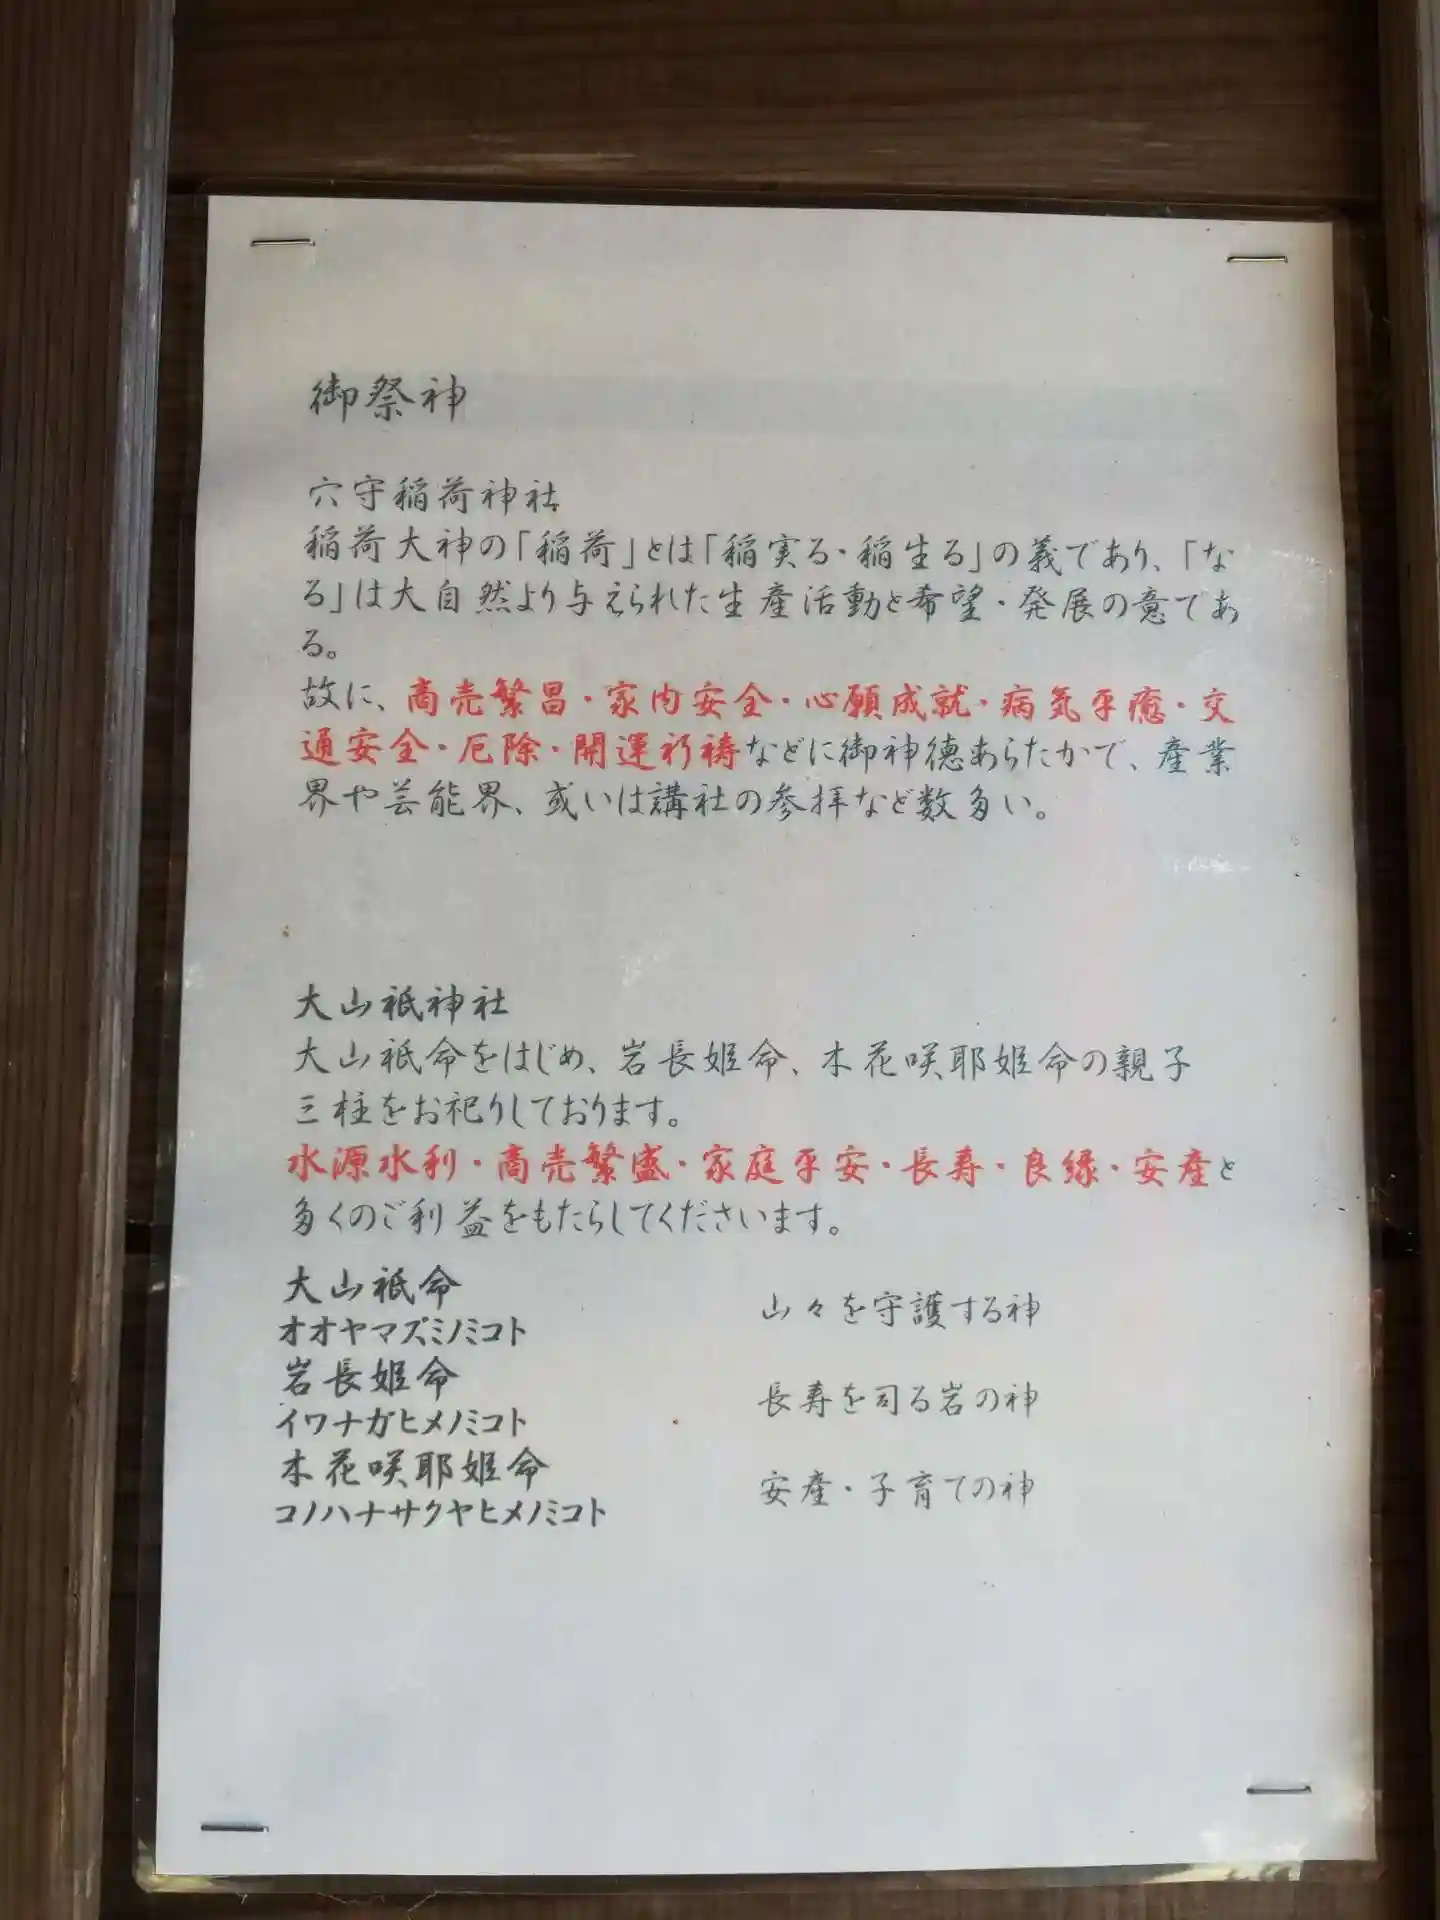 御祭神
穴守稲荷神社
稲荷大神の「稲荷」とは「稲実る・稲生る」の義であり、「な
る」は大自然より与えられた生産活動と希望・発展の意であ
る。
故に、商売繁昌・家内安全・心願成就・病気平癒・交
通安全・厄除・開運祈祷などに御神徳あらたかで、産業
界や芸能界、或いは講社の参拝など数多い。
大山祇神社
大山祇命をはじめ、岩長姫命、木花咲耶姫命の親子
三柱をお祀りしております。
水源水利・商売繁盛・家庭平安・長寿・良縁・安産と
多くのご利益をもたらしてくださいます。
大山祇命
オオヤマズミノミコト 山々を守護する神
岩長姫命
イワナガヒメノミコト 長寿を司る岩の神
木花咲耶姫命
コノハナサクヤヒメノミコト 安産・子育ての神